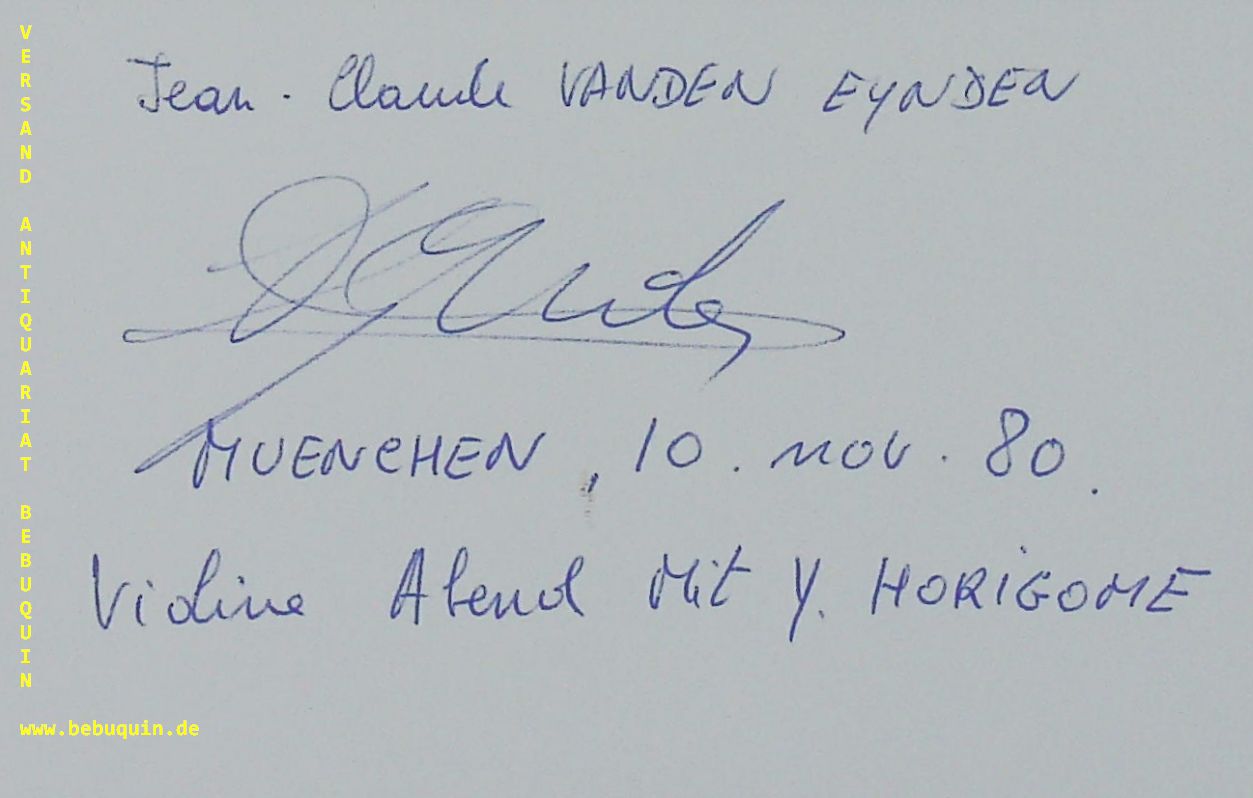 Jean-Claude VANDEN EYNDEN
MUENCHEN, 10. nov. 80.
Violine Abend Mit Y. HORIGOME
VERSAND ANTIQUARIAT BEBUQUIN
www.bebuquin.de